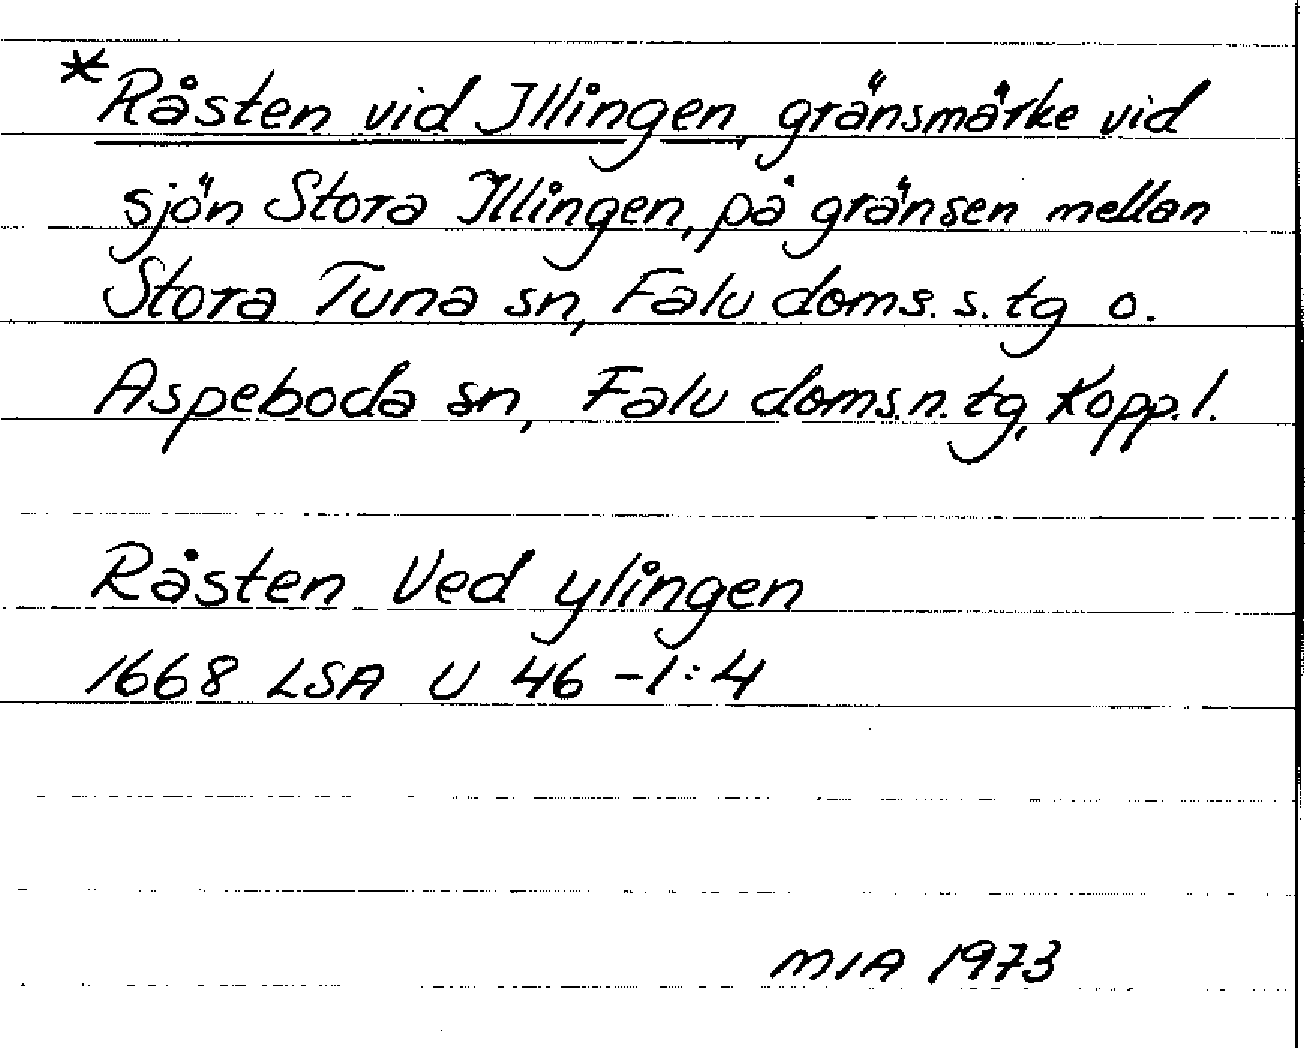 *Råsten vid Illingen, gränsmärke vid
sjön Stora Illingen, på gränsen mellan
Stora Tuna sn, Falu doms. s. tg o.
Aspeboda sn, Falu doms.n. tg, Kopp. l.
Råsten Ved ylingen
1668 LSA U 46 -1:4
MIA 1973